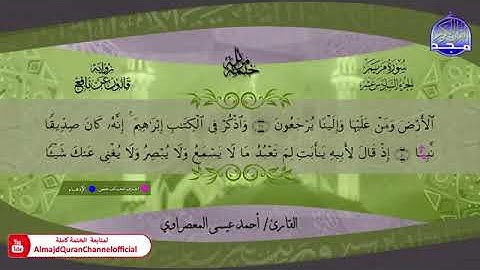 سورة مريم
الجزء السادس عشر
برواية
قالون عن نافع
الأَرْضَ وَمَنْ عَلَيْهَا وَإِلَيْنَا يُرْجَعُونَ وَاذْكُرْ فِى الْكِتَٰبِ إِبْرَٰهِيمَ إِنَّهُۥ كَانَ صِدِّيقًا
نَّبِيٓـًٔا إِذْ قَالَ لِأَبِيهِ يَٰٓأَبَتِ لِمَ تَعْبُدُ مَا لَا يَسْمَعُ وَلَا يُبْصِرُ وَلَا يُغْنِى عَنكَ شَيْـًٔا
الإدغام
القارئ/ أحمد عيسى المعصراوي
لمتابعة الختمة كاملة
AlmajdQuranChannelofficial
You Tube